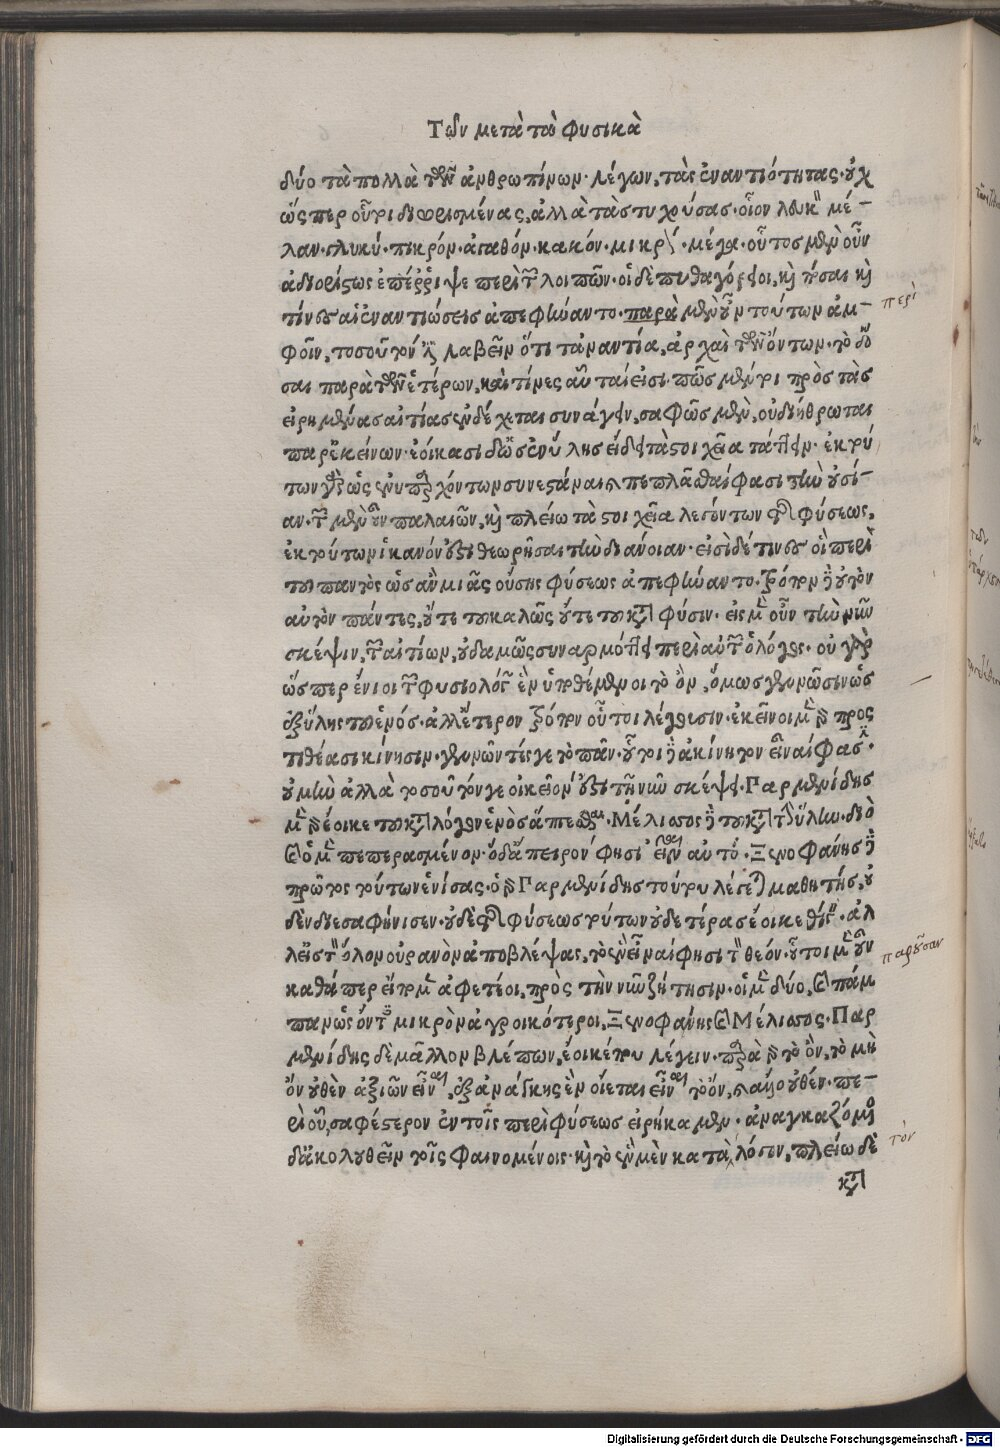 Τῶν μετὰ τὰ Φυσικὰ
δύο τὰ πολλὰ τῶν ἀνθρωπίνων· λέγων, τὰς ἐναντιότητας· οὐχ
ὥσπερ οὗτοι διωρισμένας, ἀλλὰ τὰς τυχούσας· οἷον λευκὸν μέ-
λαν· γλυκύ· πικρόν· ἀγαθόν· κακόν· μικρὸν· μέγα· οὗτος μὲν οὖν
ἀδιορίστως ἐπέῤῥιψε περὶ τῶν λοιπῶν· οἱ δὲ πυθαγόρειοι, καὶ πόσαι καὶ
τίνες αἱ ἐναντιώσεις ἀπεφήναντο· παρὰ μὲν οὖν τούτων ἀμ-
περὶ
φοῖν, τοσοῦτον ἔστι λαβεῖν ὅτι τἀναντία, ἀρχαὶ τῶν ὄντων· τὸ δ' ὅ
σαι παρὰ τῶν ἑτέρων, καὶ τίνες αὗταί εἰσι· πῶς μέντοι πρὸς τὰς
εἰρημένας αἰτίας ἐνδέχεται συνάγειν, σαφῶς μὲν, οὐ διήθρωται
παρ' ἐκείνων· ἐοίκασι δ' ὡς ἐν ὕλης εἴδει τὰ στοιχεῖα τάττειν· ἐκ τού
των γὰρ ὡς ἐνυπαρχόντων συνεστάναι καὶ πεπλᾶσθαί φασι τὴν οὐσί-
αν· τῶν μὲν οὖν παλαιῶν, καὶ πλείω τὰ στοιχεῖα λεγόντων τῆς φύσεως,
ἐκ τούτων ἱκανόν ἐστι θεωρῆσαι τὴν διάνοιαν· εἰσὶ δέ τινες οἳ περὶ
τοῦ παντὸς ὡς ἂν μιᾶς οὔσης φύσεως ἀπεφήναντο· τρόπον δὲ οὐ τὸν
αὐτὸν πάντες, οὔτε τοῦ καλῶς οὔτε τοῦ κατὰ φύσιν· εἰς μὲν οὖν τὴν νῦν
σκέψιν, τῶν αἰτίων, οὐδαμῶς συναρμόττει περὶ αὐτῶν ὁ λόγος· οὐ γὰρ
ὥσπερ ἔνιοι τῶν φυσιολόγων ἓν ὑποθέμενοι τὸ ὂν, ὅμως γεννῶσιν ὡς
ἐξ ὕλης τοῦ ἑνός· ἀλλ' ἕτερον τρόπον οὗτοι λέγουσιν· ἐκεῖνοι μὲν γὰρ προς
τιθέασι κίνησιν· γεννῶντές γε τὸ πᾶν· οὗτοι δὲ ἀκίνητον εἶναί φασιν·
οὐ μὴν ἀλλὰ τοσοῦτόν γε οἰκεῖόν ἐστι τῇ νῦν σκέψει· Παρμενίδης
μὲν γὰρ ἔοικε τοῦ κατὰ λόγον ἑνὸς ἅπτεσθαι· Μέλισσος δὲ τοῦ κατὰ τὴν ὕλην· διὸ
καὶ ὁ μὲν πεπερασμένον· ὁ δ' ἄπειρόν φησιν εἶναι αὐτό· Ξενοφάνης δὲ
πρῶτος τούτων ἑνίσας· ὁ γὰρ Παρμενίδης τούτου λέγεται μαθητής, οὐ
δὲν διεσαφήνισεν· οὐδὲ τῆς φύσεως τούτων οὐδετέρας ἔοικε θίγειν· ἀλ
λ' εἰς τὸν ὅλον οὐρανὸν ἀποβλέψας, τὸ ἓν εἶναί φησι τὸν θεόν· οὗτοι μὲν οὖν
παροῦσαν
καθάπερ εἴπομεν ἀφετέοι, πρὸς τὴν νῦν ζήτησιν· οἱ μὲν δύο, καὶ πάμ
παν ὡς ὄντες μικρὸν ἀγροικότεροι, Ξενοφάνης καὶ Μέλισσος· Παρ
μενίδης δὲ μᾶλλον βλέπων, ἔοικέ που λέγειν· παρὰ γὰρ τὸ ὂν, τὸ μὴ
ὂν οὐθὲν ἀξιῶν εἶναι, ἐξ ἀνάγκης ἓν οἴεται εἶναι τὸ ὄν, καὶ ἄλλο οὐθέν· πε-
ρὶ οὗ, σαφέστερον ἐν τοῖς περὶ φύσεως εἰρήκαμεν· ἀναγκαζόμενος
δ' ἀκολουθεῖν τοῖς φαινομένοις· καὶ τὸ ἓν μὲν κατὰ λόγον, πλείω δὲ
τὸν
κατὰ
Digitalisierung gefördert durch die Deutsche Forschungsgemeinschaft - DFG